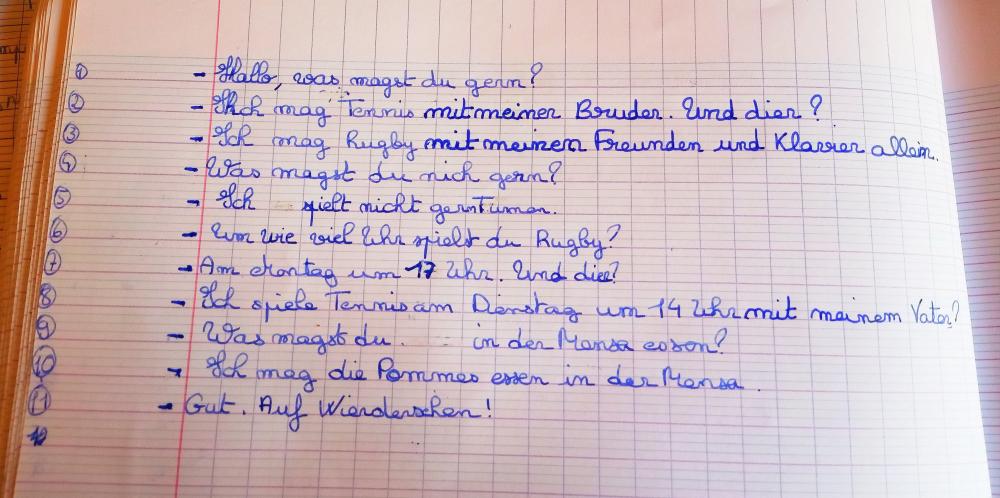 ① - Hallo, was magst du gern?
② - Ich mag Tennis mit meiner Bruder. Und dier?
③ - Ich mag Rugby mit meinen Freunden und Klavier allein.
④ - Was magst du nich gern?
⑤ - Ich spielt nicht gern Turnen.
⑥ - Um wie viel Uhr spielst du Rugby?
⑦ - Am Montag um 17 Uhr. Und die?
⑧ - Ich spiele Tennis am Dienstag um 14 Uhr mit meinem Vater?
⑨ - Was magst du in der Mensa essen?
⑩ - Ich mag die Pommes essen in der Mensa.
⑪ - Gut. Auf Wierdersehen!
12